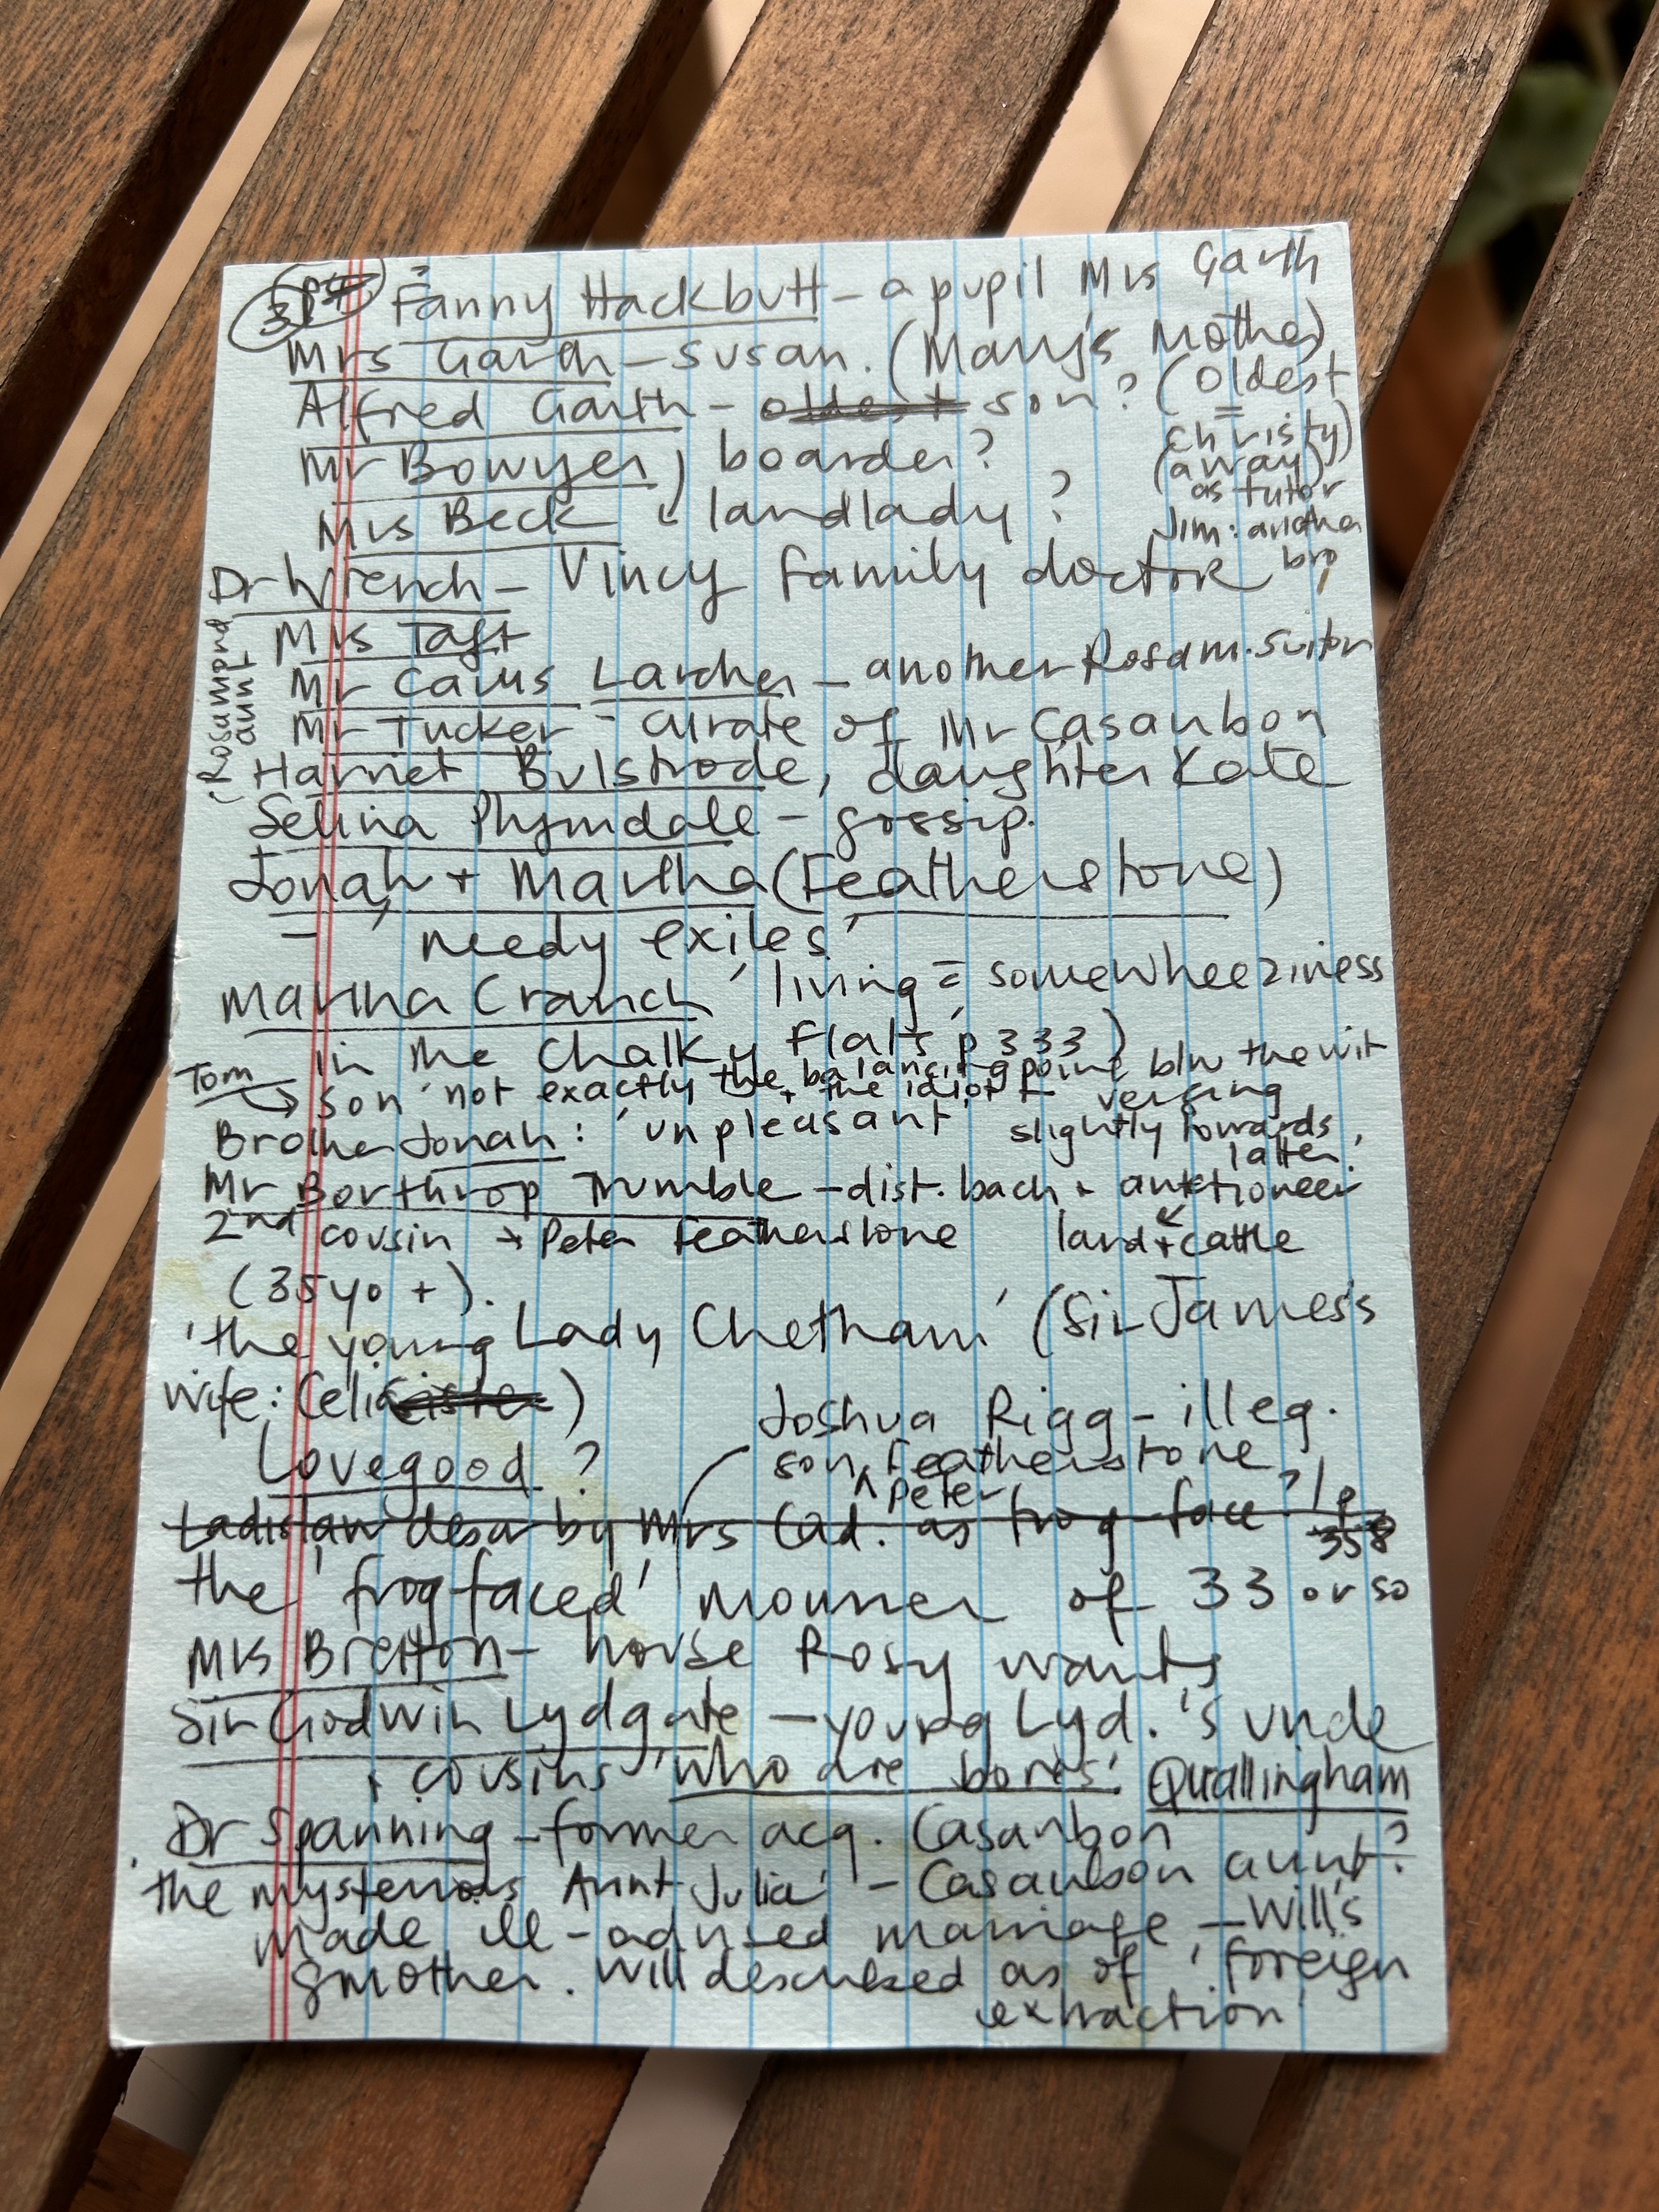 3
Fanny Hackbutt - a pupil Mrs Garth
Mrs Garth - Susan. (Mary's Mother)
Alfred Garth - oldest son? (oldest
= Christy)
(away)
as tutor
Jim: another
bro
Mr Bowyer, boarder?
Mrs Beck landlady?
Dr Wrench - Vincy family doctor
Mrs Taft
Mr Caius Larcher - another Rosam. suitor
Mr Tucker - curate of Mr Casaubon
(Rosamond
aunt
Harriet Bulstrode, daughter Kate
Selina Plymdale - gossip.
Jonah + Martha (Featherstone)
- 'needy exiles'
Martha Cranch 'living = some wheeziness
in the Chalky Flats' p 333)
Tom → son 'not exactly the balancing point b/w the wit
+ the idiot verging
slightly towards
latter.'
Brother Jonah: 'unpleasant'
Mr Borthrop Trumble - dist. bach + auctioneer
2nd cousin → Peter Featherstone land + cattle
(35yo +).
'the young Lady Chetham' (Sir James's
wife: Celia)
Joshua Rigg - illeg.
son Peter Featherstone
Lovegood?
Ladislaw descr by Mrs Cad. as frog face? / p
358
the 'frog faced' mourner of 33 or so
Mrs Bretton - house Rosy wants
Sir Godwin Lydgate - young Lyd.'s uncle
+ cousins 'who are bores'. Quallingham
Dr Spanning - former acq. Casaubon
'the mysterious Aunt Julia' - Casaubon aunt?
made ill-advised marriage - Will's
gmother. Will described as of 'foreign
extraction'